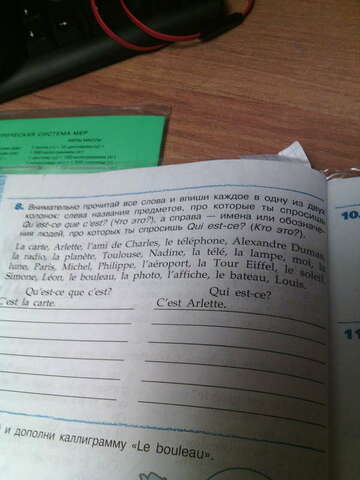 РИЧЕСКАЯ СИСТЕМА МЕР
МЕРЫ МАССЫ
8. Внимательно прочитай все слова и впиши каждое в одну из двух
колонок: слева названия предметов, про которые ты спросишь
Qu'est-ce que c'est? (Что это?), а справа — имена или обозначе-
ния людей, про которых ты спросишь Qui est-ce? (Кто это?).
La carte, Arlette, l'ami de Charles, le téléphone, Alexandre Dumas,
la radio, la planète, Toulouse, Nadine, la télé, la lampe, moi, la
lune, Paris, Michel, Philippe, l'aéroport, la Tour Eiffel, le soleil,
Simone, Léon, le bouleau, la photo, l'affiche, le bateau, Louis.
Qu'est-ce que c'est?
Qui est-ce?
C'est la carte.
C'est Arlette.
и дополни каллиграмму «Le bouleau».
10
11